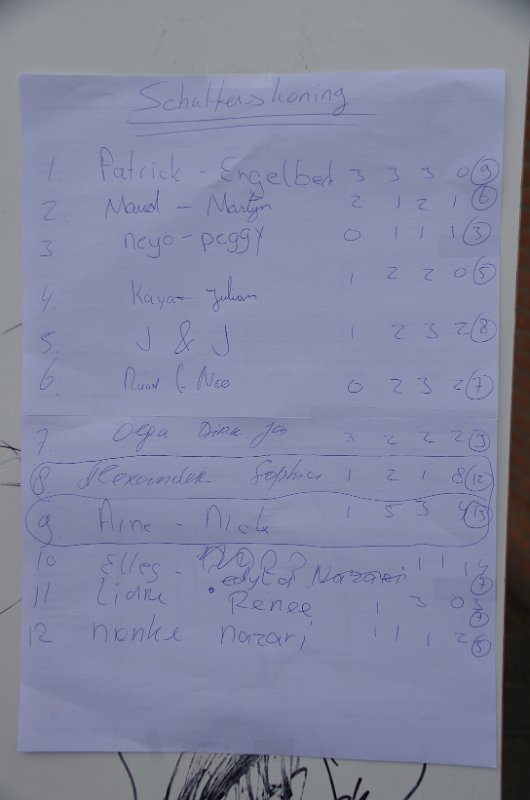 Schutterskoning
1. Patrick - Engelbert 3 3 3 0 9
2. Maud - Martijn 2 1 2 1 6
3 neyo - peggy 0 1 1 1 3
4. Kaya - Julian 1 2 2 0 5
5. J & J 1 2 3 2 8
6 Ruud & Neo 0 2 3 2 7
7. Olga Dirk Jan 3 2 2 2 9
8 Alexander Sophia 1 2 1 8 12
9 Aine - Nick 1 5 3 4 13
10 Elles - Nazari 1 1 1 4
11 Lidia Renee 1 3 0 3 7
12 nonke nazari 1 1 1 2 5